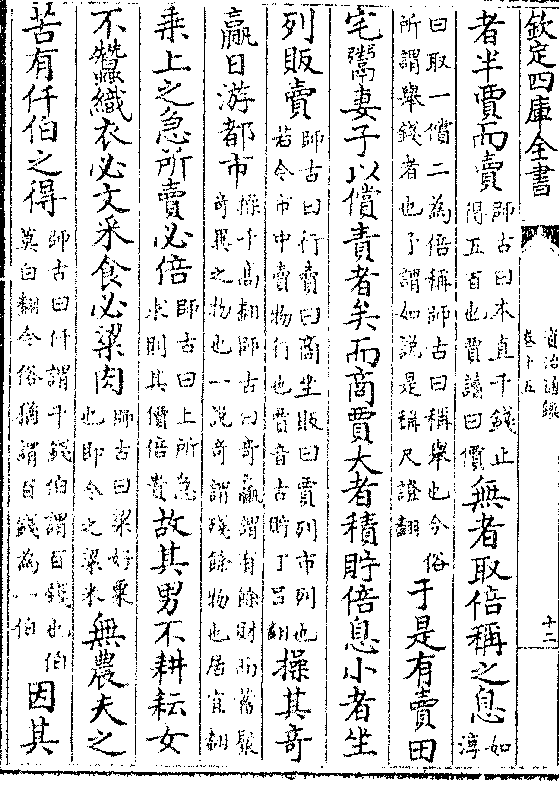 欽定四庫全書
資治通鑑
卷十五
十二
者半賈而賣師古曰本直千錢止得五百也賈讀曰價無者取倍稱之息如淳
曰取一償二為倍稱師古曰稱舉也今俗所謂舉錢者也予謂如說是稱尺證翻于是有賣田
宅鬻妻子以償責者矣而商賈大者積貯倍息小者坐
列販賣師古曰行賣曰商坐販曰賈列市列也若今市中賣物行也賈音古貯丁呂翻操其奇
贏日游都市操千高翻師古曰奇贏謂有餘財而蓄聚奇異之物也一說奇謂殘餘物也居宜翻
乗上之急所賣必倍師古曰上所急求則其價倍貴故其男不耕耘女
不蠶織衣必文采食必粱肉師古曰粱好粟也即今之粱米無農夫之
苦有仟伯之得師古曰仟謂千錢伯謂百錢也伯莫白翻今俗猶謂百錢為一伯因其